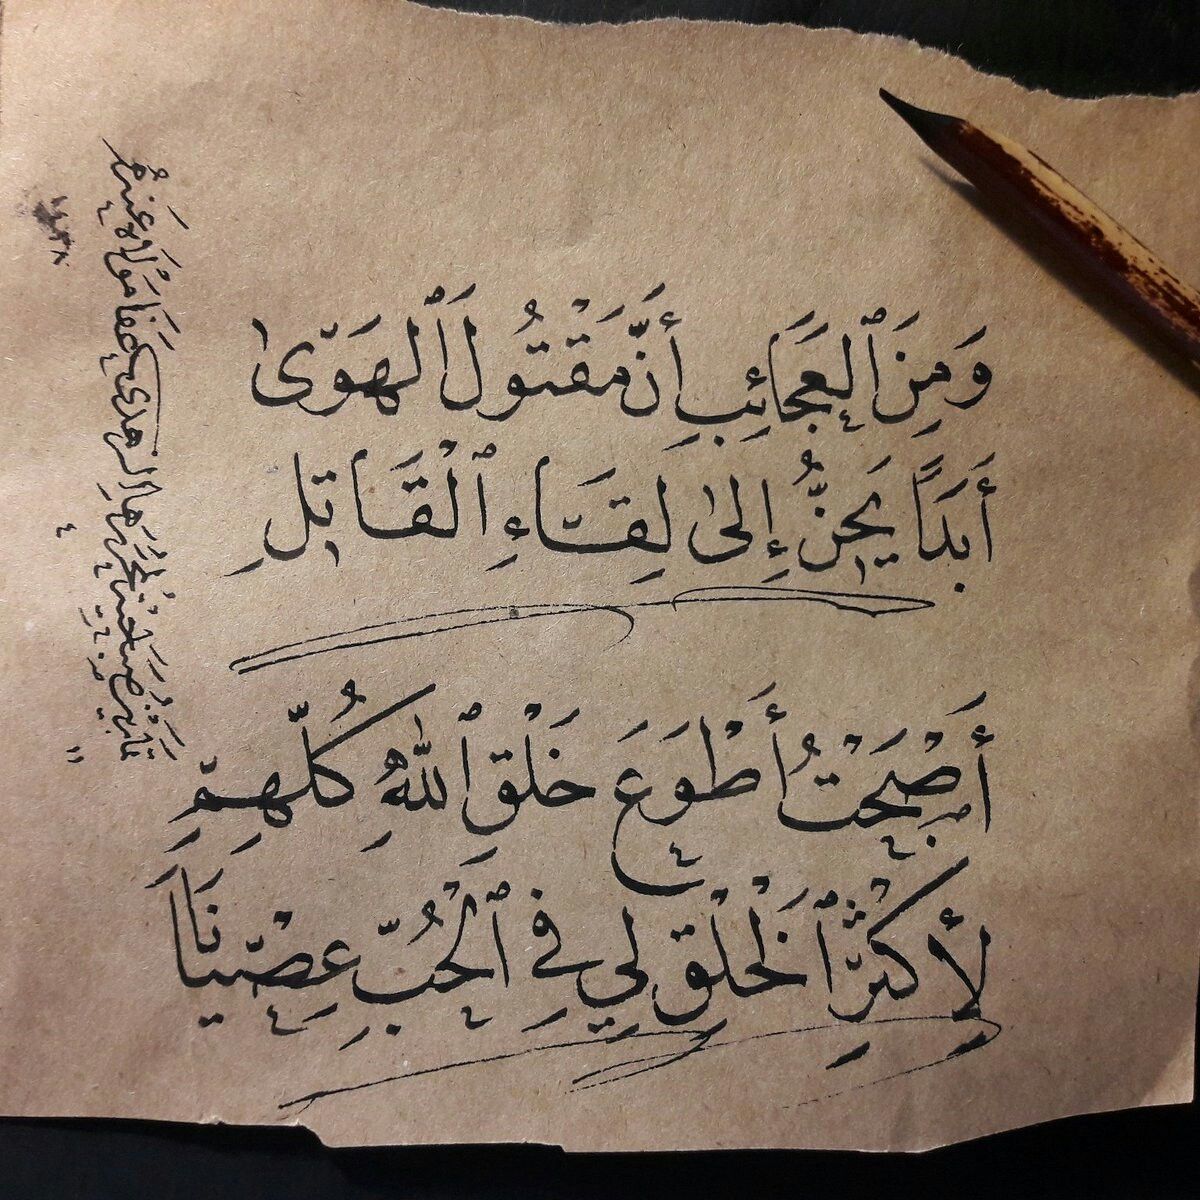 وَمِنَ ٱلْعَجَائِبِ أَنَّ مَقْتُولَ ٱلْهَوَىٰ
أَبَدًا يَحِنُّ إِلَىٰ لِقَاءِ ٱلْقَاتِلِ
أَصْبَحْتُ أَطْوَعَ خَلْقِ ٱللَّهِ كُلِّهِمِ
لِأَكْثَرِ ٱلْخَلْقِ لِي فِي ٱلْحُبِّ عِصْيَانَا
١٤٣٨